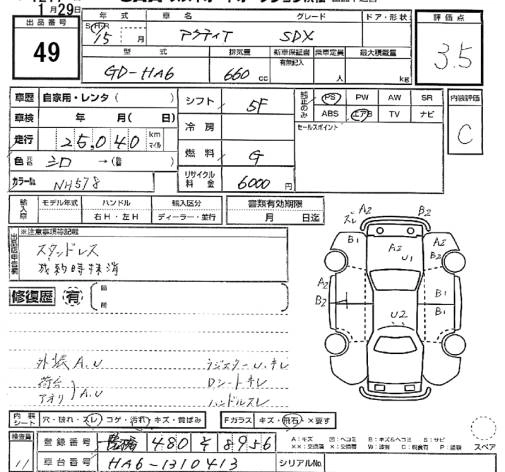 1月29日
出品番号
49
年式 車名 グレード ドア・形状
S・H・R 15月 アクティ SDX
型式 排気量 新車保証書 乗車定員 最大積載量
有 記入
GD-HA6 660 cc 人 kg
評価点
3.5
車歴 自家用・レンタ ( )
シフト 5F
PS PW AW SR
ABS エアB TV ナビ
内装評価
C
車検 年 月 ( 日)
冷房
セールスポイント
走行 25,040 km マイル
色 シロ →(替 )
燃料 G
カラーNo. NH578
リサイクル料金 6000円
輸入車 モデル年式 ハンドル 輸入区分
右H・左H ディーラー・並行
書類有効期限
月 日迄
※注意事項等記載
スタンドレス
成約時抹消
修復歴 有
A2 B2
B1 A2 U1 B1
A2 B2
B1
B1
U2
外装 A.U
荷台
アオリ A.U
ハンドルスレ
内装シート 穴・破れ・スレ コゲ・汚れ・キズ・黄ばみ
Fガラス キズ・飛石・×要す
スペア
検査員 11
登録番号 480 そ 8956
車台番号 HA6-1310413
シリアルNo.